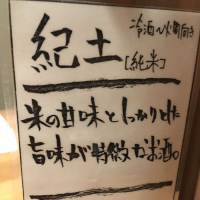 冷酒〜火燗向き
紀土
[純米]
米の甘味としっかりとした
旨味が特徴なお酒。